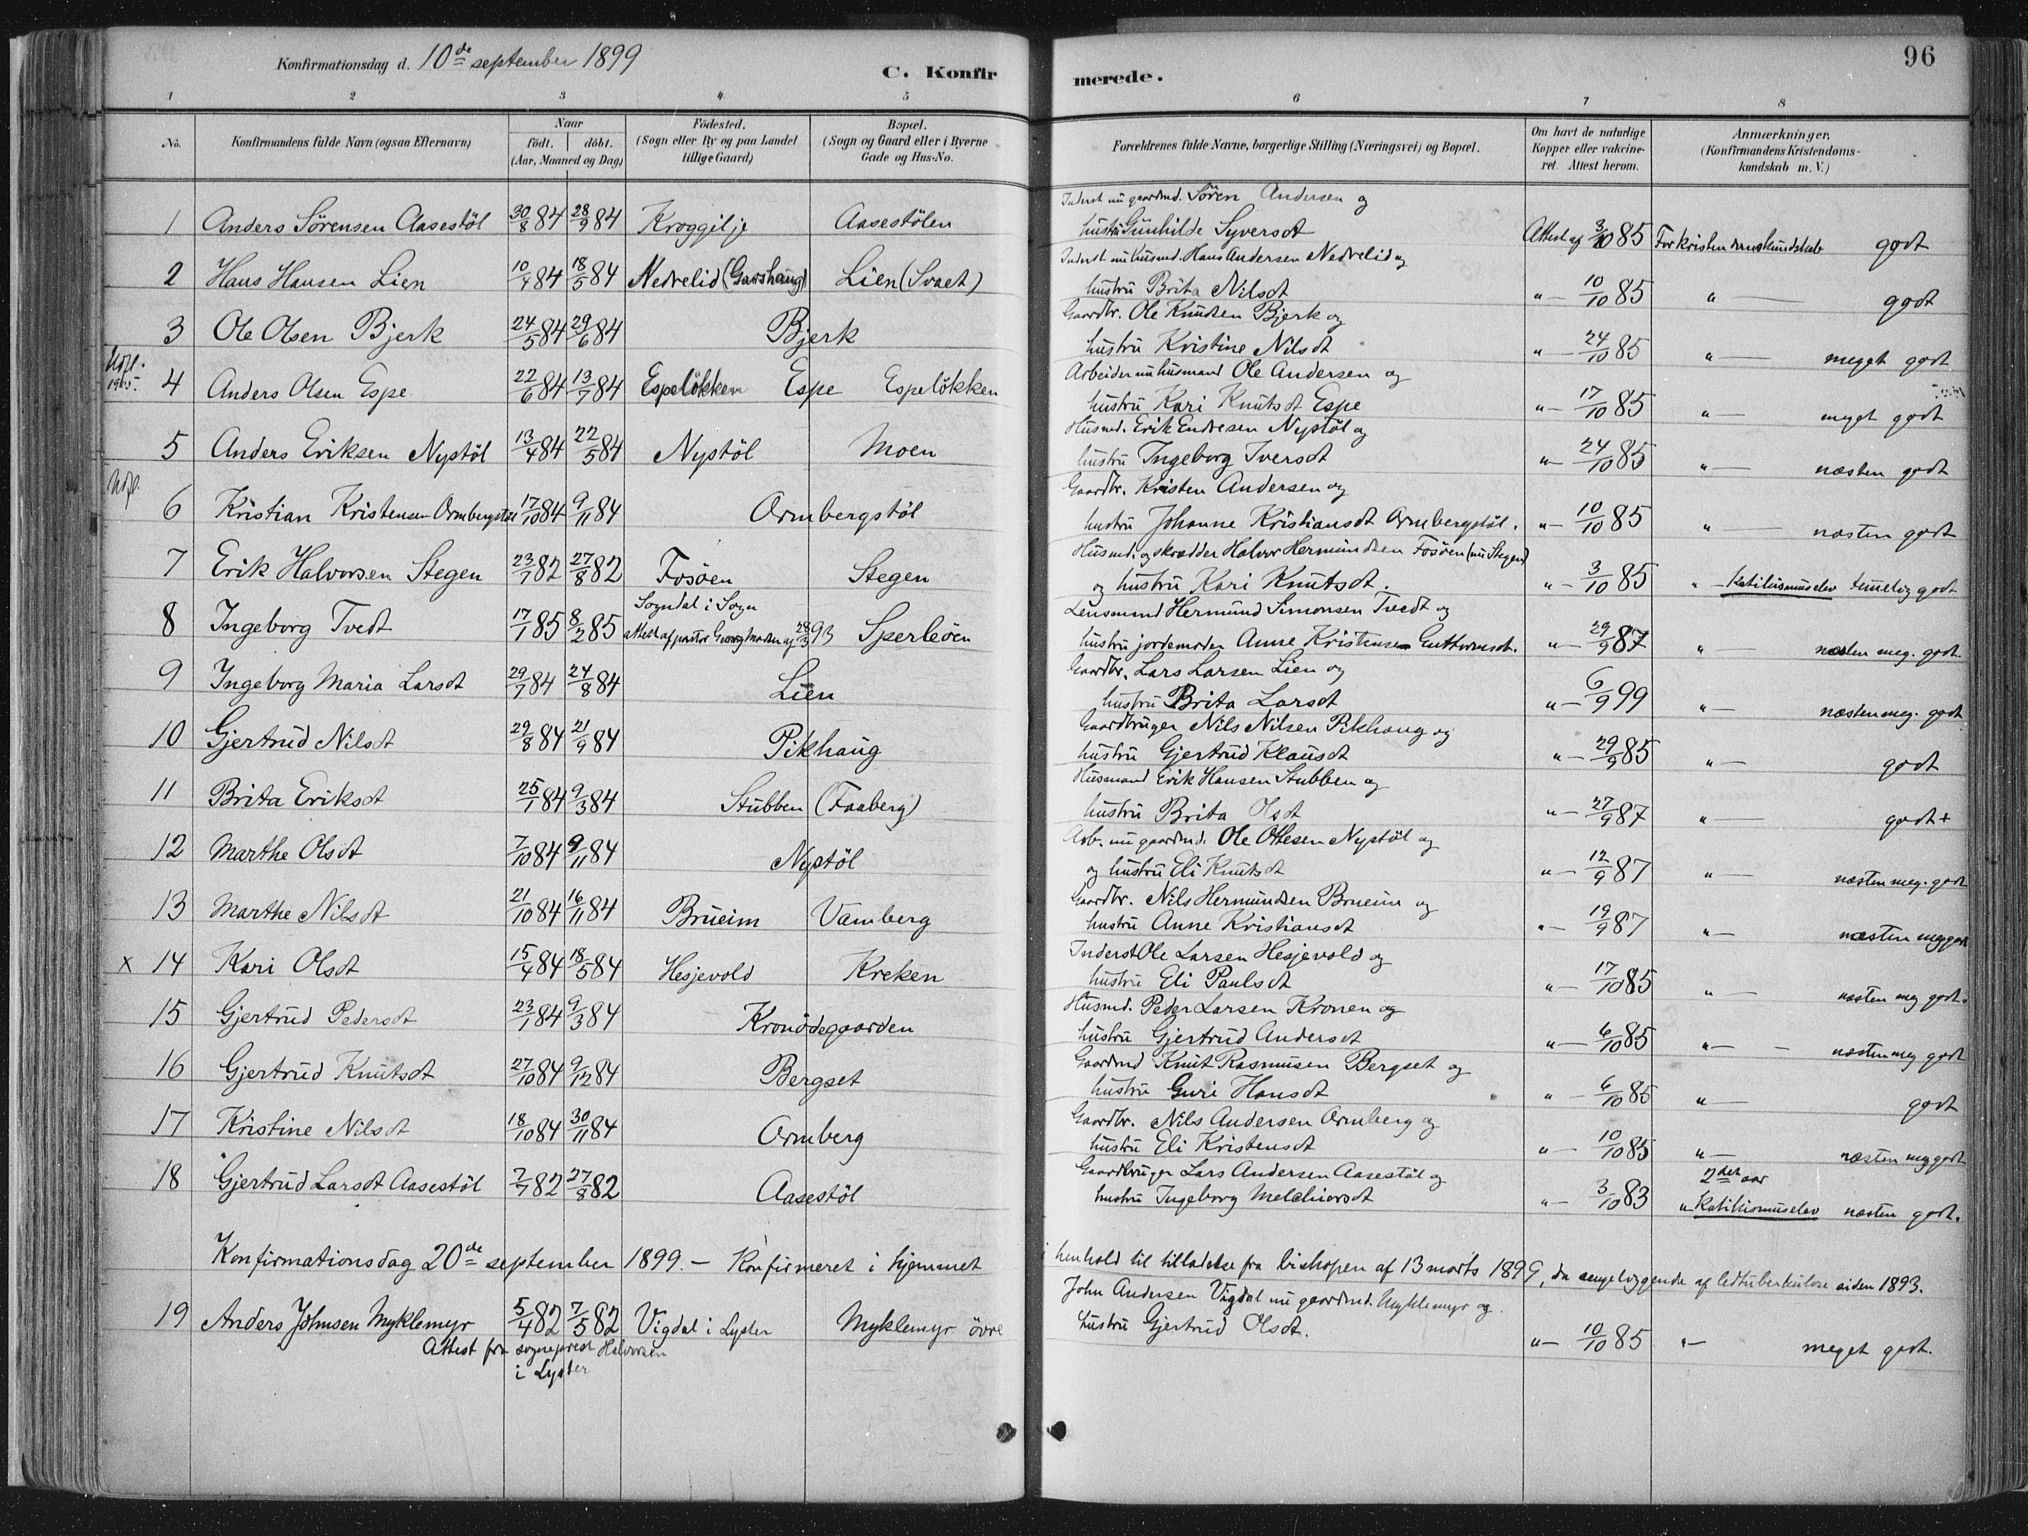 Konfirmationsdag d. 10de september 1899
C. Konfirmerede.
96
1 2 3 4 5 6 7 8
No. Konfirmandens fulde Navn (ogsaa Efternavn) Naar født. døbt. (Aar, Maaned og Dag) Fødested. (Sogn eller By og paa Landet tillige Gaard) Bopæl. (Sogn og Gaard eller i Byerne Gade og Hus-No. Forældrenes fulde Navne, borgerlige Stilling (Næringsvei) og Bopæl. Om havt de naturlige Kopper eller vakcineret. Attest herom. Anmærkninger. (Konfirmandens Kristendomskundskab m. V.)
Inderst nu gaardmd. Sören Andersen og
1 Anders Sörensen Aasestöl 30/8 84 28/9 84 Kroggilje Aasestölen hustru Gunhilde Syversdt Attest af 3/10 85 For kristendomskundskab godt
Inderst nu husmd. Hans Andersen Nedrelid og
2 Hans Hansen Lien 10/4 84 18/5 84 Nedrelid (Garshaug) Lien (Svaet) hustru Brita Nilsdt " – 10/10 85 " — godt
Gaardbr. Ole Knudsen Bjerk og
3 Ole Olsen Bjerk 24/5 84 29/6 84 Bjerk hustru Kristine Nilsdt " – 24/10 85 " — meget godt
Udfl. 1905.
Arbeider nu husmand Ole Andersen og
4 Anders Olsen Espe 22/6 84 13/7 84 Espelökken Espe Espelökken hustru Kari Knutsdt Espe " – 17/10 85 " — meget godt
Husmd. Erik Endresen Nystöl og
5 Anders Eriksen Nystöl 13/4 84 22/5 84 Nystöl Moen hustru Ingeborg Iversdt " – 24/10 85 " — næsten godt
Udfl.
Gaardbr. Kristen Andersen og
6 Kristian Kristensen Ormbergstöl 17/10 84 9/11 84 Ormbergstöl hustru Johanne Kristiansdt Ormbergstöl. " – 10/10 85 " — næsten godt
Husmd. og skrædder Halvor Hermundsen Fosöen (nu Stegen)
7 Erik Halvorsen Stegen 23/7 82 27/8 82 Fosöen Stegen og hustru Kari Knutsdt. " – 3/10 85 " – Katikismuselev temelig godt
Sogndal i Sogn
Lensmand Hermund Simonsen Tvedt og
8 Ingeborg Tvedt 17/1 85 8/2 85 attest af pastor Georg Madsen af 28/3 93 Sperleöen hustru jordemoder Anne Kristense Guttormsdt. " – 29/9 87 " — næsten meg. godt.
Gaardbr. Lars Larsen Lien og
9 Ingeborg Maria Larsdt 29/7 84 24/8 84 Lien hustru Brita Larsdt " – 6/9 99 " — næsten meg. godt
Gaardbruger Nils Nilsen Pikhaug og
10 Gjertrud Nilsdt 29/8 84 21/9 84 Pikhaug hustru Gjertrud Klausdt " – 29/9 85 " — godt
Husmand Erik Hansen Stubben og
11 Brita Eriksdt 25/1 84 9/3 84 Stubben (Faaberg) hustru Brita Olsdt " – 27/9 87 " — godt+
Arb. nu gaardmd. Ole Ottesen Nystöl og
12 Marthe Olsdt 7/10 84 9/11 84 Nystöl og hustru Eli Knutsdt " – 12/9 87 " — næsten meg. godt
Gaardbr. Nils Hermundsen Brueim og
13 Marthe Nilsdt 21/10 84 16/11 84 Brueim Vamberg hustru Anne Kristiansdt " – 19/9 87 " — næsten meg godt
Inderst Ole Larsen Hesjevold og
x 14 Kari Olsdt 15/4 84 18/5 84 Hesjevold Kreken hustru Eli Paulsdt " – 17/10 85 " — næsten meg godt.
Husmd. Peder Larsen Kronen og
15 Gjertrud Pedersdt 23/1 84 9/3 84 Kronödegaarden hustru Gjertrud Andersdt " – 6/10 85 " — næsten meg godt
Gaardmd Knut Rasmusen Bergset og
16 Gjertrud Knutsdt 27/10 84 9/12 84 Bergset hustru Guri Hansdt " – 6/10 85 " — godt
Gaardbr. Nils Andersen Ormberg og
17 Kristine Nilsdt 18/10 84 30/11 84 Ormberg hustru Eli Kristensdt " – 10/10 85 " — næsten meg godt
Gaardbruger Lars Andersen Aasestöl og 2det aar
18 Gjertrud Larsdt Aasestöl 2/7 82 27/8 82 Aasestöl hustru Ingeborg Melchiorsdt " – 3/10 83 " Katikismuselev næsten godt.
Konfirmationsdag 20de september 1899. – Konfirmeret i hjemmet i henhold til tilladelse fra biskopen af 13 marts 1899, da sengeliggende af ledtuberkulose siden 1893.
John Andersen Vigdal nu gaardmd. Myklemyr og
19 Anders Johnsen Myklemyr 5/4 82 7/5 82 Vigdal i Lyster Myklemyr övre hustru Gjertrud Olsdt. " – 10/10 85 " – meget godt.
Attest fra sogneprest Halvorsen
i Lyster